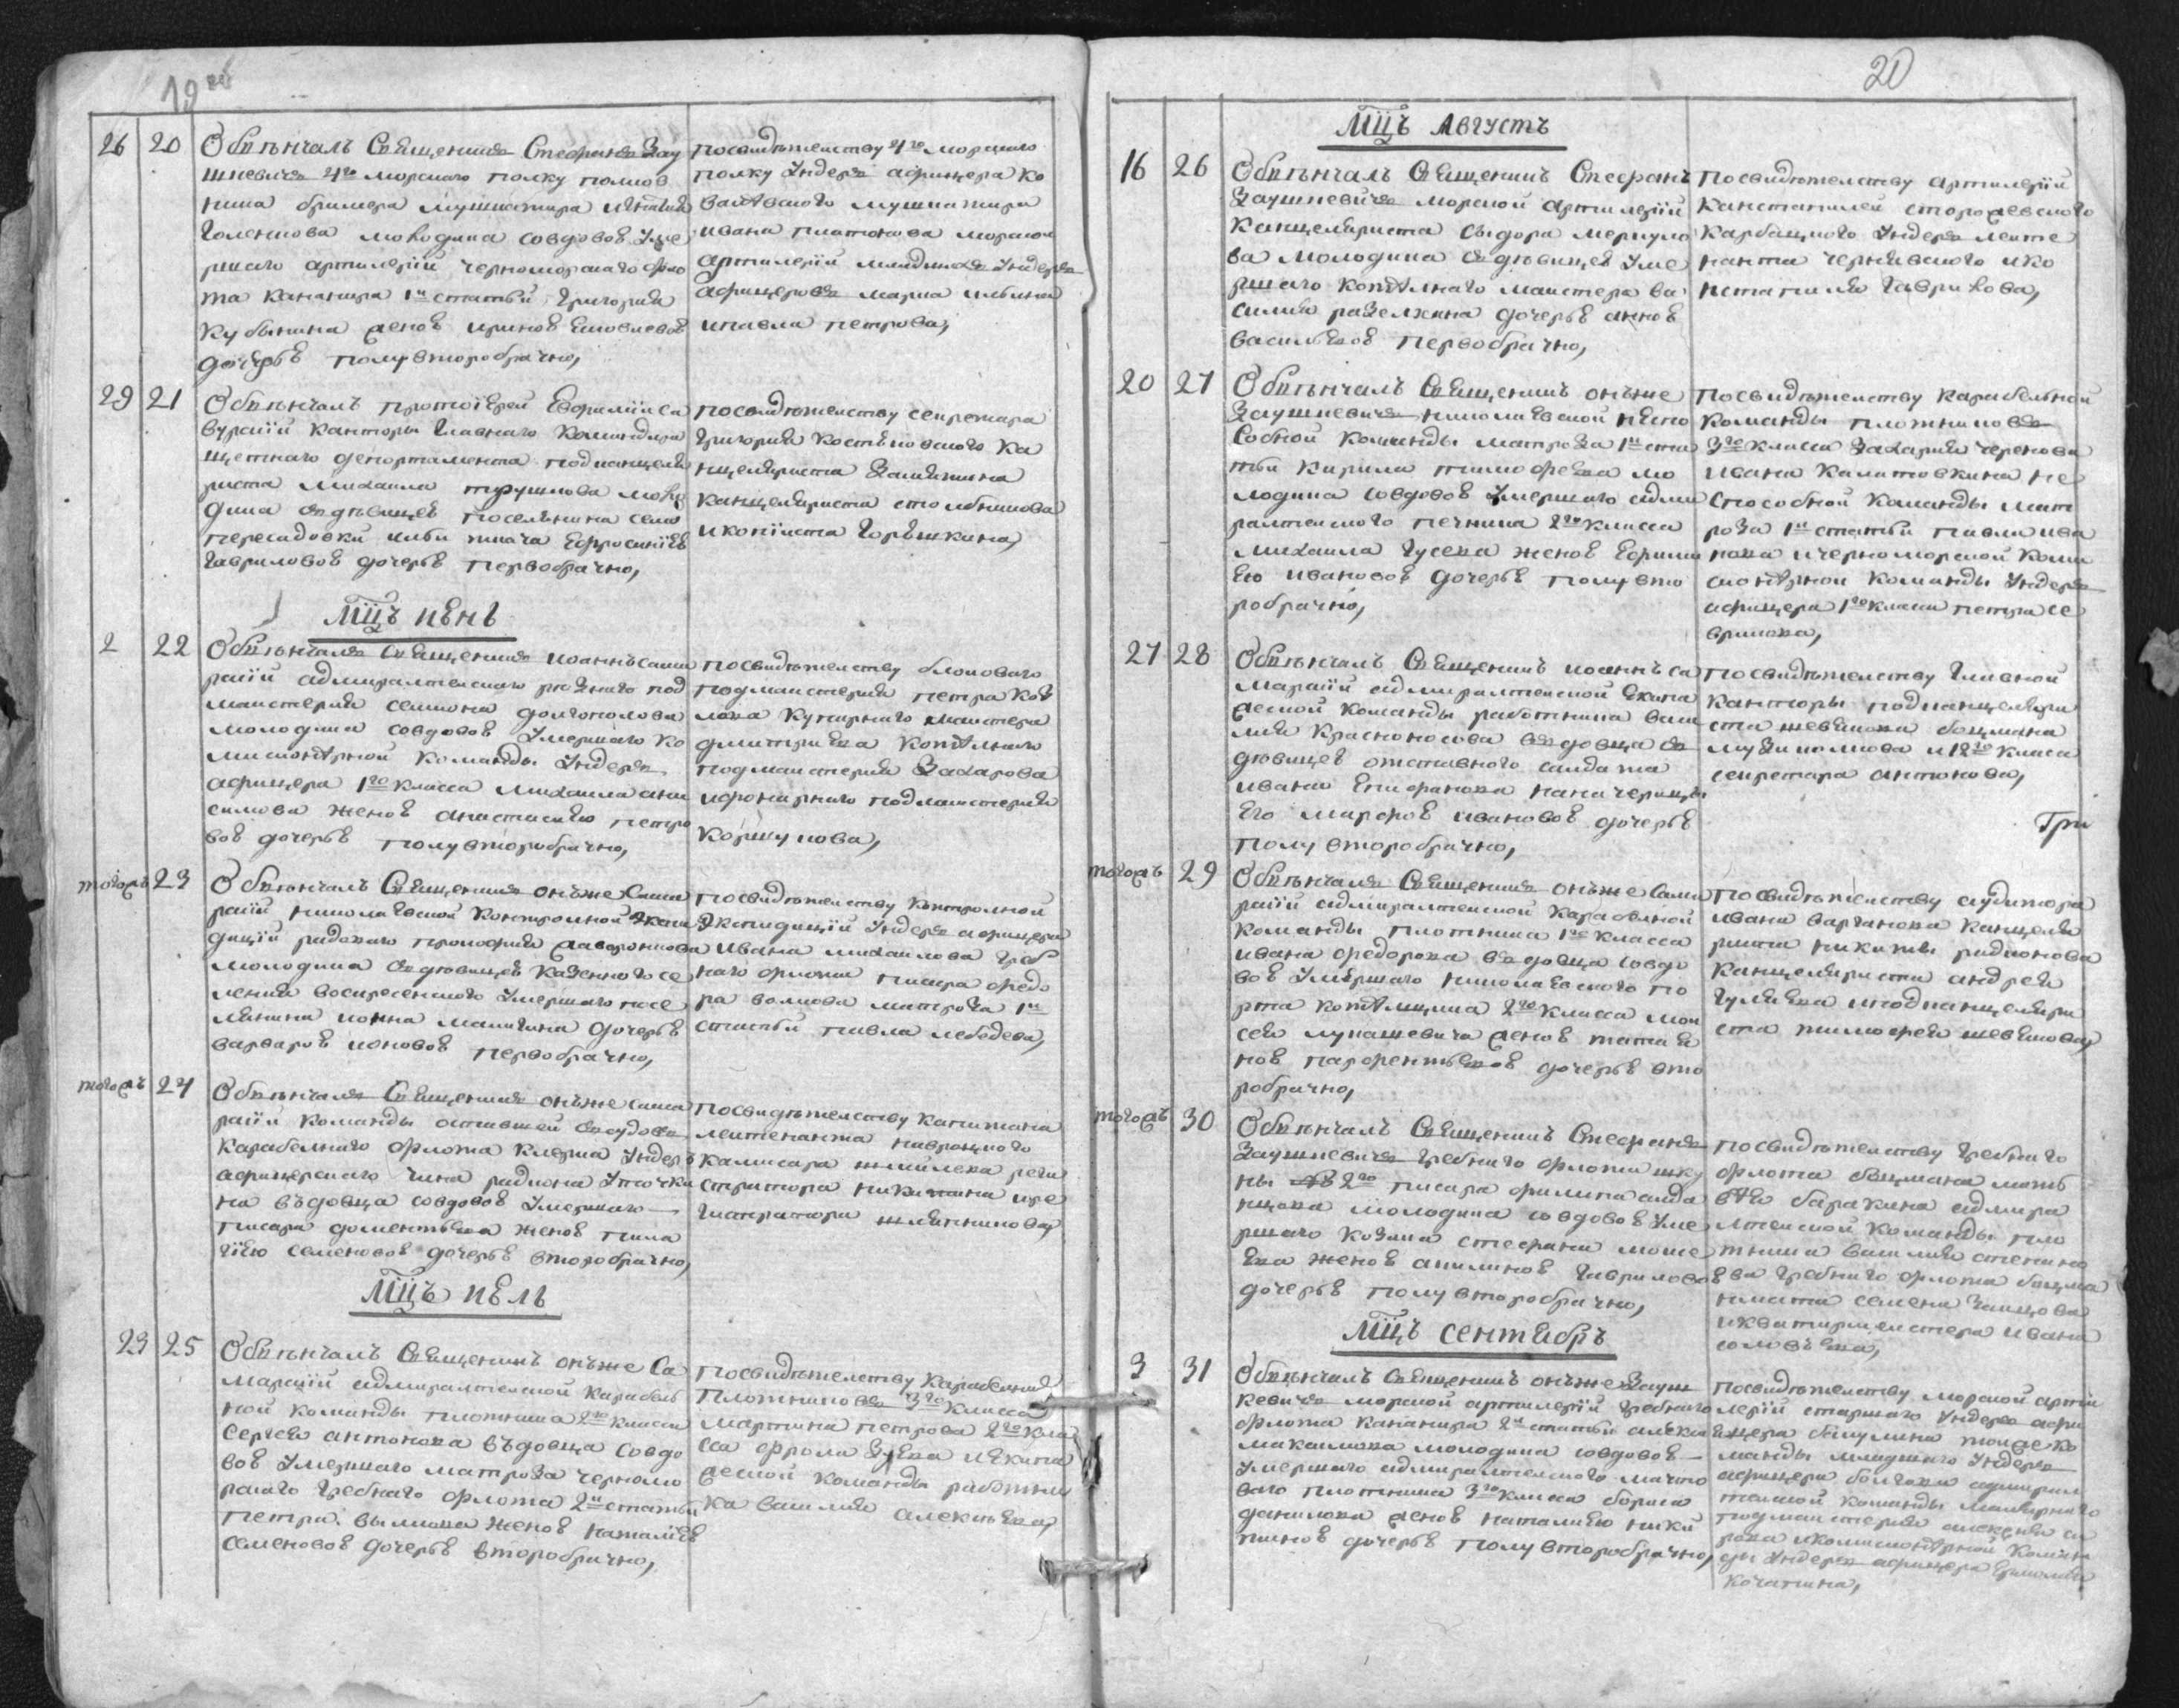 19
26 20 Обвѣнчалъ Священникъ Стефанъ Зау
шкевичъ 4го морского полку полков
ника бримера мушкатира
Голенкова молодика совдовою уме
ршаго артилеріи черноморскаго фло
та канонира 1й статьи григорія
Кубынина женою ириною Яковлевою
дочерью полувторобрачно,
посвидѣтелству 4го морскаго
полку ундеръ афицера ко
мушкатира
ивана платонова морской
артилеріи младшихъ ундеръ
афицеровъ марка ильина
ипавла петрова,
29 21 Обвѣнчалъ протоіерей Евфимій са
вурскій канторы главнаго командира
щетнаго департамента подканцеля
риста михаила трушкова моло
дика здѣвицею поселянина села
пересадовки ильи ткача Ефросиніею
Гавриловою дочерью первобрачно,
посвидѣтелству секретара
григорія костѣковского ка
нцеляриста Замяткина
канцеляриста столбникова
икопіиста Горѣшкина,
Мцъ июнь
2 22 Обвѣнчалъ Священникъ иоаннъ сама
рскій адмиралтейскаго рѣзнаго под
мастерья семиона долгополова
молодика совдовою умершаго ко
мисионерной команды ундеръ
афицера 1го класса михаила ани
симова женою анастасиею петро
вою дочерью полувторобрачно,
посвидѣтелству блоковаго
подмастерья петра коз
лова купорнаго мастера
дмитриева котелнаго
подмастерья Захарова
ифонарнаго подмастерья
Коршунова,
тогожъ 23 Обвѣнчалъ Священникъ онъже Сама
рскій николаевской контролной Экспе
диціи рядового прокофия жаворонкова
молодика здѣвицею казенного се
ления воскресенского умершаго посе
лянина ионна малигина дочерью
варварою ионовою первобрачно,
посвидѣтелству контролной
Экспедиціи ундеръ афицера
ивана михаилова греб
наго флота писара федо
ра волкова матроза 1й
статьи павла лебедева,
тогожъ 24 Обвѣнчалъ Священникъ онъже сама
рскій команды оставшей
карабелнаго флота клерка ундеръ
афицерскаго чина радиона уточки
на въдовца совдовою умершаго
писара доментьева женою пела
гіею семеновою дочерью второбрачно,
посвидѣтелству капитана
леитенанта навроцкого
камисара шмилева реги
стратора никитина ире
гистратора шляпникова,
Мцъ июль
23 25 Обвѣнчалъ Священникъ онъже Са
марскій адмиралтейской карабель
ной команды плотника 2го класса
сергея антонова въдовца совдо
вою умершаго матроза черномо
рскаго гребнаго флота 2й статьи
петра вылкова женою наталіею
семеновою дочерью второбрачно,
посвидѣтелству карабелной
плотниковъ 3го класса
мартина петрова 2го кла
са фрола Зуева иекипа
жеской команды работни
ка василия алексѣева,
20
Мцъ Августъ
16 26 Обвѣнчалъ Священникъ Стефанъ
Заушкевичъ морской артилеріи
канцеляриста сидора меркуло
ва молодика здѣвицею уме
ршаго котелнаго мастера ва
силия разелкина дочерью анною
васильевою первобрачно,
посвидѣтелству артилеріи
канстапилей сторожевского
карбацкого ундеръ леите
нанта чернявского ико
нстапиля Гаврикова,
20 27 Обвѣнчалъ Священникъ онъже
Заушкевичъ николаевской неспо
собной команды матроза 1й ста
тьи кирила тимофеева мо
лодика совдовою умершаго адми
ралтейского печника 2го класса
михаила гусева женою Ефими
ею ивановою дочерью полувто
робрачно,
посвидѣтелству карабельной
команды плотниковъ
3го класса Захария чернова
ивана калитовкина не
способной команды мат
роза 1й статьи павла ива
нова ичерноморской коми
сионерной команды ундеръ
афицера 1го класа петра се
врикова,
27 28 Обвѣнчалъ Священникъ иоаннъ са
марскій адмиралтейской Екипа
жеской команды работника васи
лия красноносова въдовца з
дѣвицею отставного салдата
ивана Епифанова
его марфою ивановою дочерью
полувторобрачно,
посвидѣтелству главной
канторы подканцеляри
ста шевякова боцмана
и 12го класа
секретара антонова,
Гри
тогожъ 29 Обвѣнчалъ Священникъ онъже Сама
рскій адмиралтейской карабелной
команды плотника 1го класса
ивана федорова въдовца совдо
вою умѣршаго николаевского по
рта котелщика 2го класса мои
сея лукашевича женою татия
ною парфентьевою дочерью вто
робрачно,
посвидѣтелству аудитора
ивана варганова канцеля
риста никиты радионова
канцеляриста андрея
гуляева иподканцеляри
ста тимофея шевякова,
тогожъ 30 Обвѣнчалъ Священникъ Стефанъ
Заушкевичъ гребнаго флота шку
ны 2го писара филипа анда
молодика совдовою уме
ршаго козака стефана моше
ева женою акилиною Гавриловою
дочерью полувторобрачно,
посвидѣтелству гребнаго
флота боцмана матв
ѣя баракина адмира
лтейской команды пло
тника василия степано
ва гребнаго флота боцма
нмата семена Заицова
икватирмистера ивана
соловъева,
Мцъ сентябръ
3 31 Обвѣнчалъ Священникъ онъже Зауш
кевичъ морской артилеріи гребнаго
флота канонира 2й статьи
макаилова молодика совдовою
умершаго адмиралтейского мачто
ваго плотника 3го класа бориса
данилова женою наталиею ники
тиною дочерью полувторобрачно,
посвидѣтелству морской арти
лерій старшаго ундеръ афи
цера бакулина тоиже ко
манды младшаго ундеръ
афицера болгова адмирал
тейской команды маллернаго
подмастерия
рова икомисионерной коман
ды ундеръ афицера Ермолая
Кочатина,